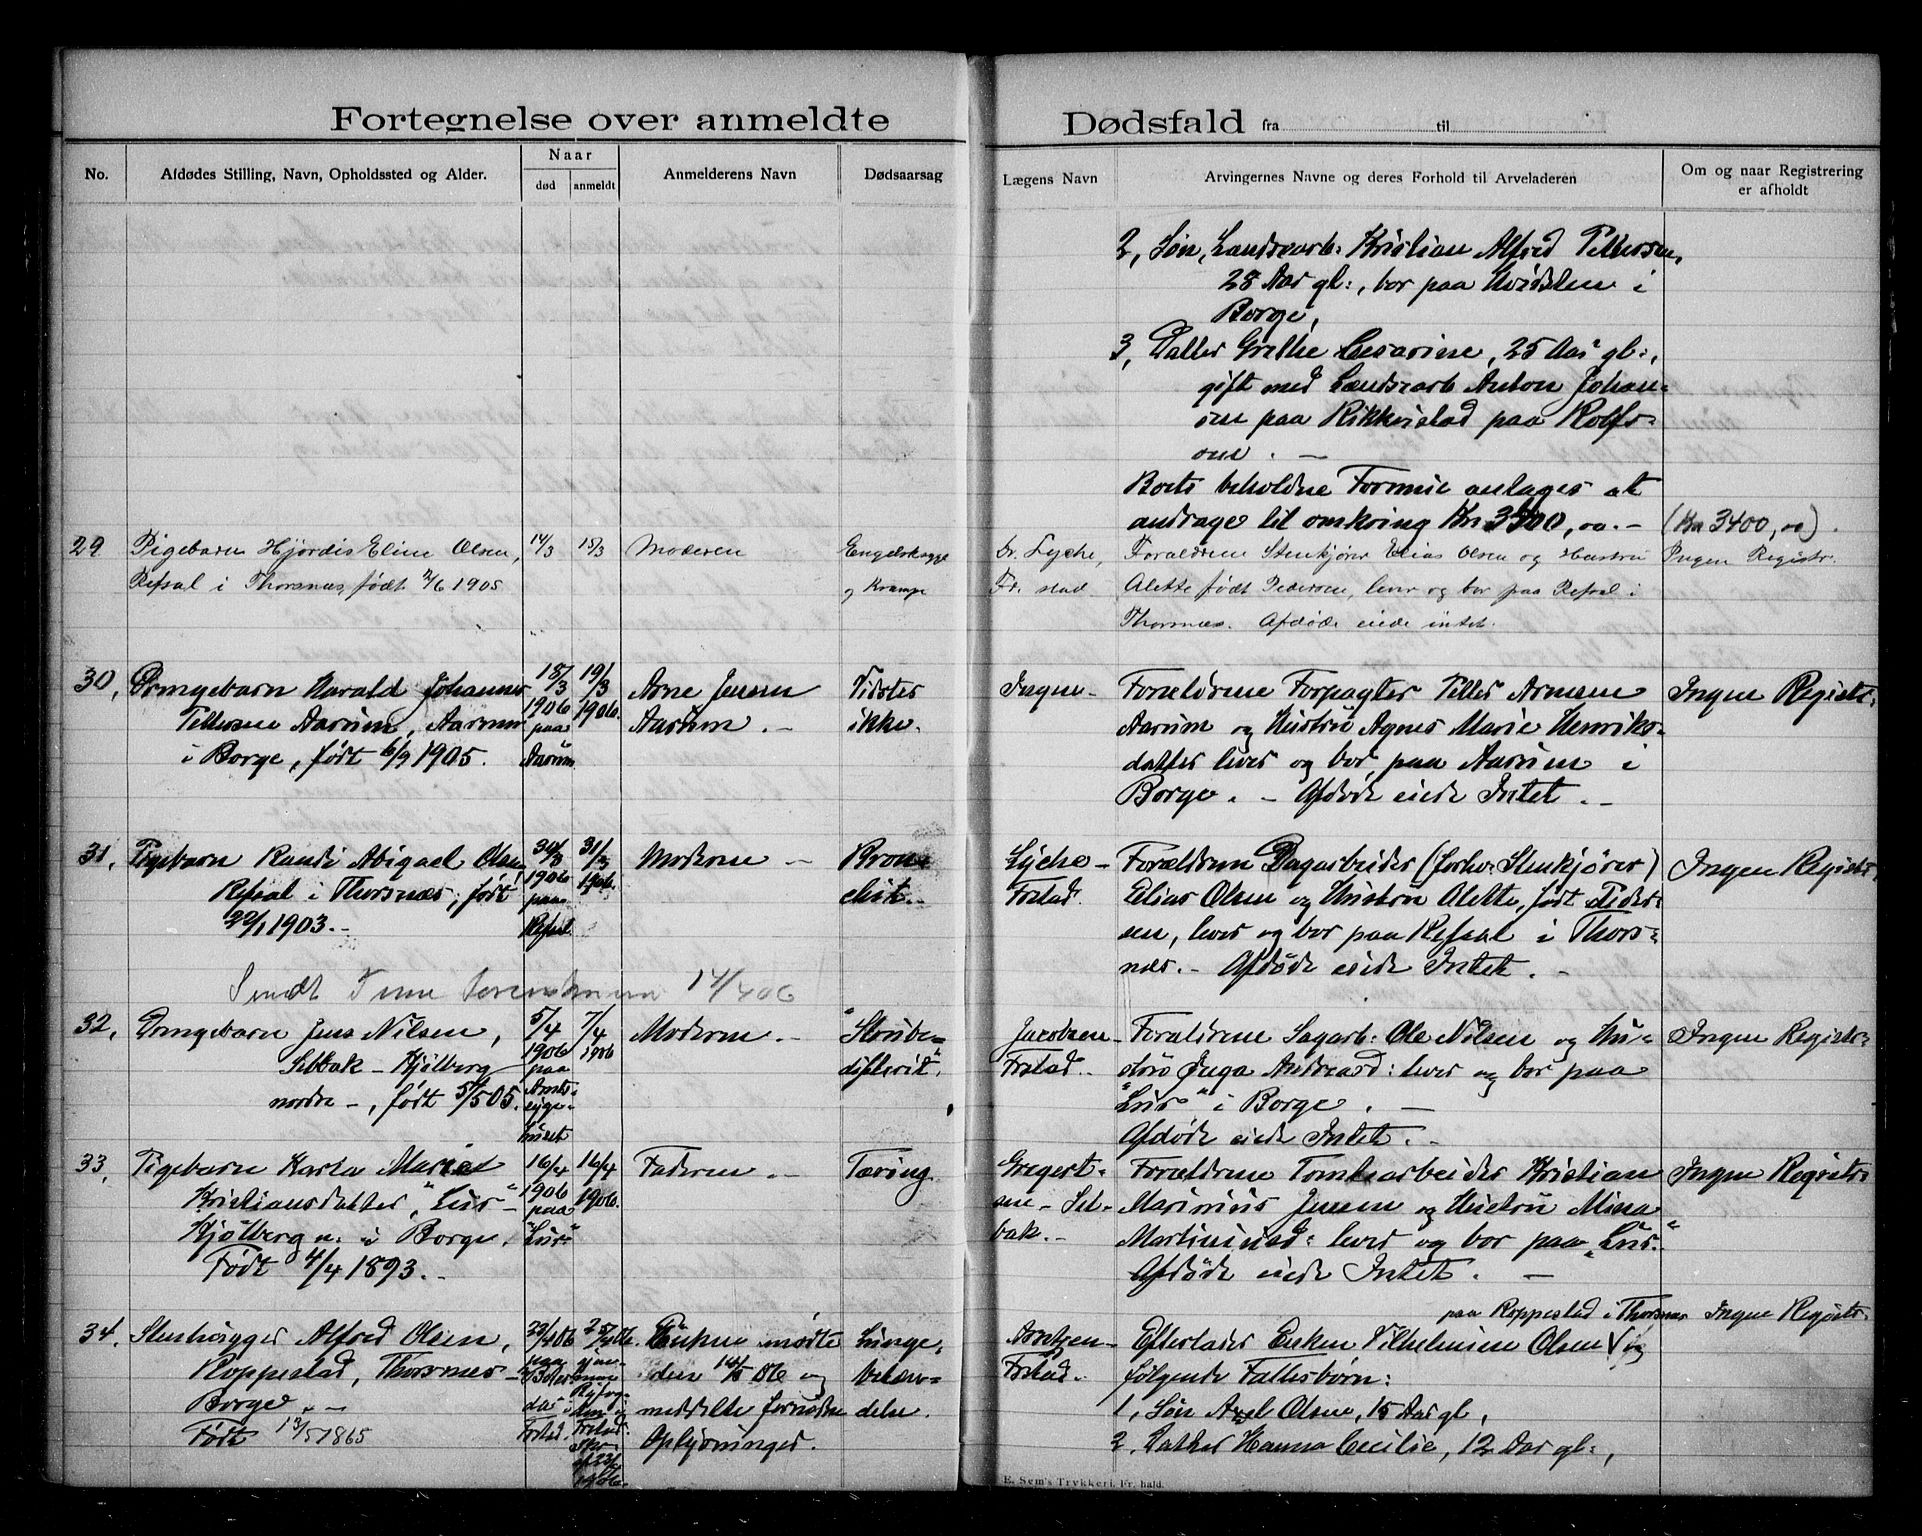 Fortegnelse over anmeldte
Dødsfald fra til
No.
Afdødes Stilling, Navn, Opholdssted og Alder.
Naar
død
anmeldt
Anmelderens Navn
Dødsaarsag
Lægens Navn
Arvingernes Navne og deres Forhold til Arveladeren
Om og naar Registrering
er afholdt
2, Søn, Landsearb: Kristian Alfred Pettersen,
28 Aar gl:, bor paa Hvidsten i
Borge,
3, Datter Grethe Cesarine, 25 Aar gl:,
gift med Landsearb Anton Johan-
sen paa Rikkeistad paa Rolfs-
øen. —
Boets beholdne Formue antages at
andrage til omkring Kr 3400,00. —
(Kr 3400,00).
29
Pigebarn Hjørdis Eline Olsen,
Refsal i Thorsnæs, født 2/6 1905
14/3
15/3
Moderen
Engelsksyge
og Krampe
Dr. Lyche,
Fr. stad
Forældrene Stenkjører Elias Olsen og Hustru
Alette født Pedersen, lever og bor paa Refsal i
Thorsnæs. Afdøde eiede intet.
Ingen Registr.
30,
Drengebarn Harald Johannes
Pettersen Aarum, Aarum
i Borge, født 6/9 1905.
18/3
1906
paa
Aarum
19/3
1906.
Arne Jensen
Aarum. —
Vidstes
ikke.
Ingen —
Forældrene Forpagter Petter Arnesen
Aarum og Hustru Agnes Marie Henriks-
datter lever og bor paa Aarum i
Borge. — Afdøde eiede Intet. —
Ingen Registr:
31,
Pigebarn Randi Abigael Olsen,
Refsal i Thorsnæs, født
22/1 1903. —
1906
paa
Refsal
31/3
1906.
Moderen —
Bron-
chit. —
Lyche —
Frstad.
Forældrene Dagarbeider (forhv: Stenkjører)
Elias Olsen og Hustru Alette, født Peder-
sen, lever og bor paa Refsal i Thors-
næs. — Afdøde eiede Intet. —
Ingen Registr.
Sendt 14/4 06
32,
Drengebarn Jens Nilsen,
Sebbak — Kjølberg
nordre —, født 5/5 05.
5/4
1906
paa
Amts-
syge-
huset
7/4
1906
Moderen. —
"Strube-
difterit".
Jacobsen —
Frstad. —
Forældrene Sagarb: Ole Nilsen og Hu-
stru Inga Andreasd: lever og bor paa
"Lur" i Borge. —
Afdøde eiede Intet. —
Ingen Registr:
33,
Pigebarn Karla Marie
Kristiansdatter, "Lur" —
Kjølberg n. i Borge.
Født 4/4 1893. —
16/4
1906
paa
"Lur"
16/4
1906.
Faderen. —
Tæring
Gregert-
sen — Seb-
bak. —
Forældrene Tomtearbeider Kristian
Marinius Jensen og Hustru Mina
Martinusd: lever og bor paa "Lur."
Afdøde eiede Intet. —
Ingen Registr:
34.
Stenhugger Alfred Olsen,
Roppestad, Thorsnes —
Borge. —
Født 13/5 1865
22/4 06
paa
Frstad.
Enken mødte
den 14/5 06 og
meddelte fornødne
Oplysninger.
Lunge-
betæn-
delse.
Arntzen —
Frstad. —
paa Roppestad i Thorsnæs
Efterlader Enken Vilhelmine Olsen V og
følgende Fællesbørn:
1, Søn Axel Olsen, 15 Aar gl,
2. Datter Hanna Cecilie, 12 Aar gl:,
Ingen Registr:
E. Sem's Trykkeri, Fr. hald.